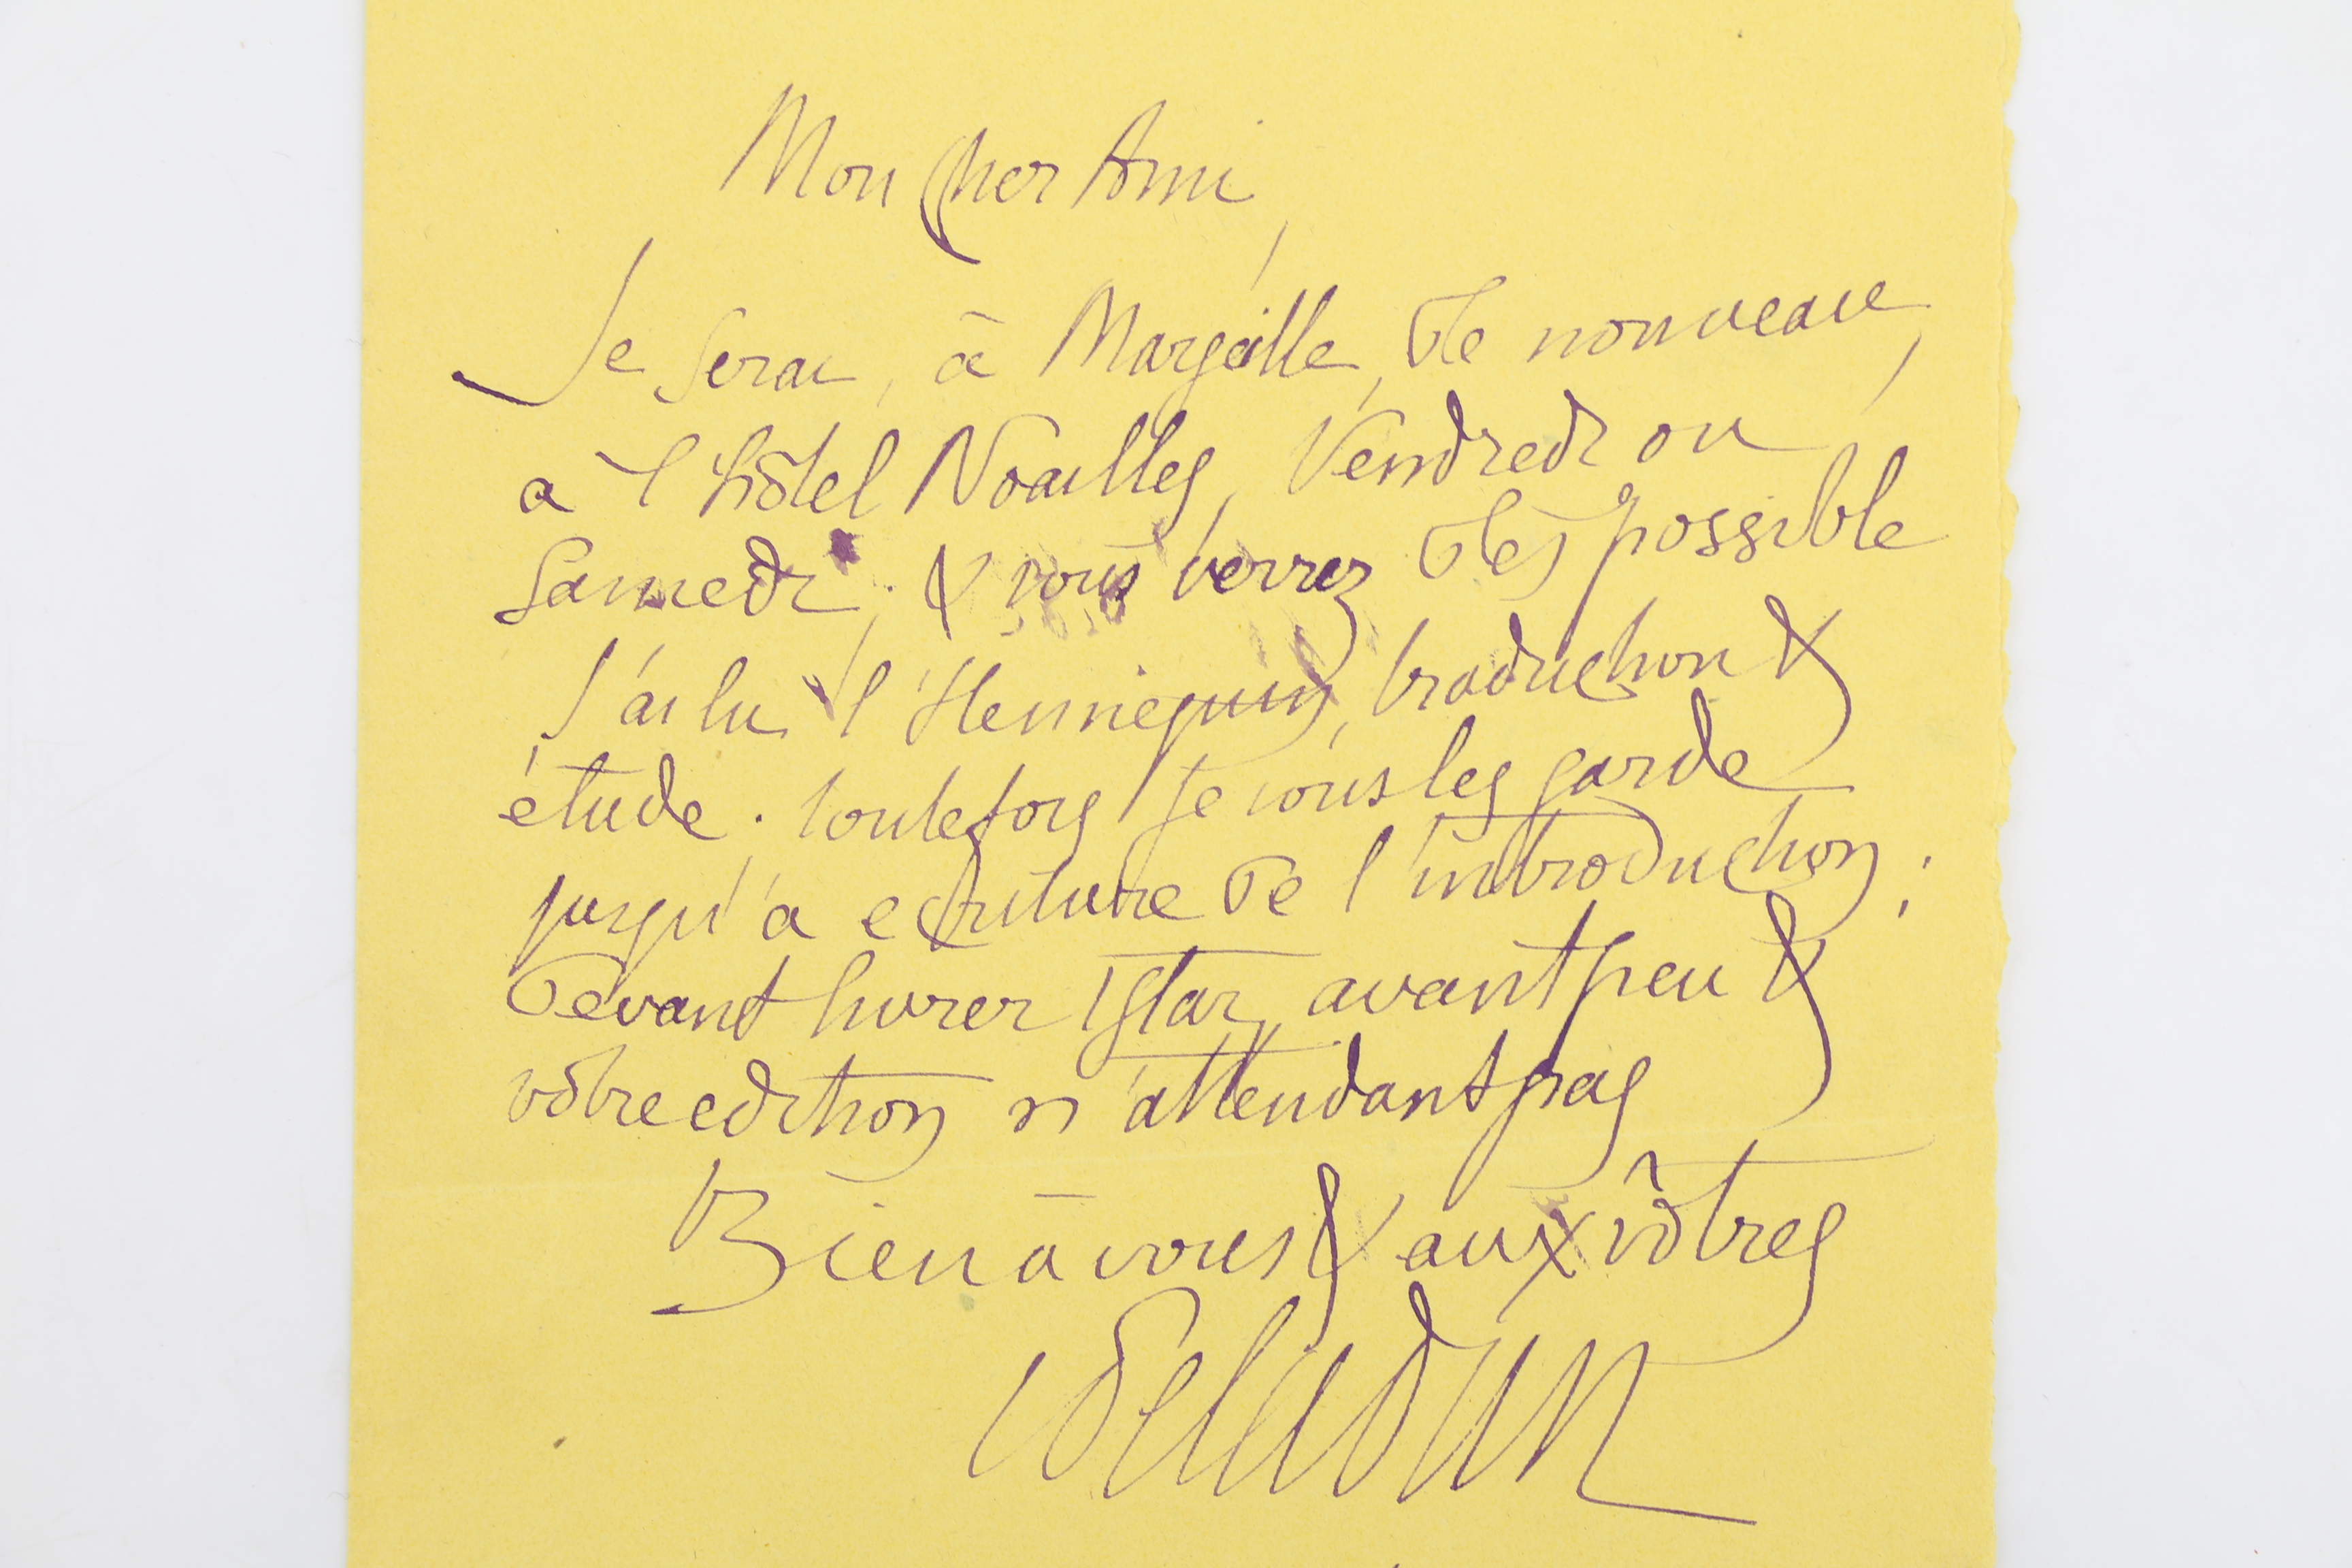 Mon cher Ami,
Je serai, à Marseille, de nouveau,
a l'hôtel Noailles, Vendredi ou
Samedi. & vous verrez dès possible
J'ai lu l'Hennequin, traduction &
étude. toutefois je vous les garde
jusqu'à ecriture de l'introduction ;
devant livrer Istar, avant peu &
vôtre edition n'attendant pas
Bien à vous & aux vôtres
Peladan